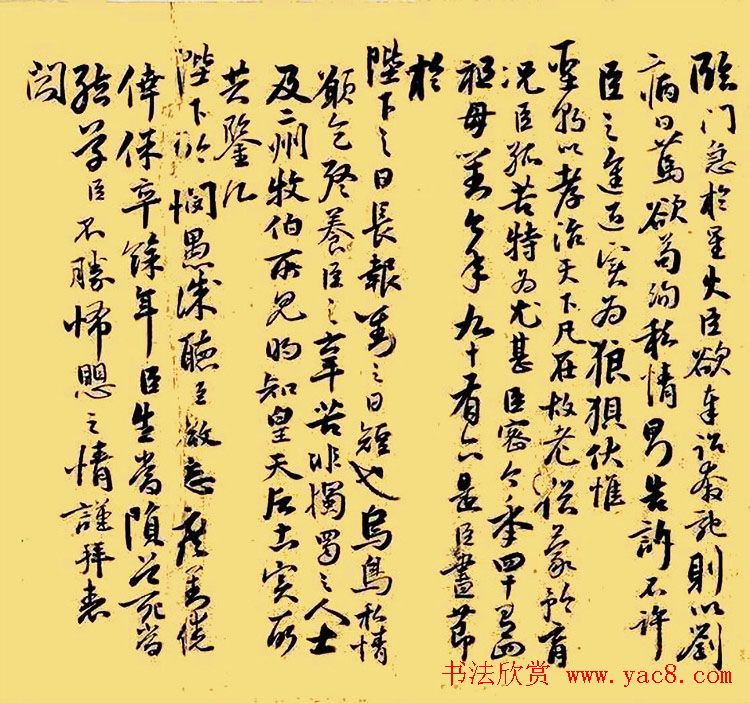 臨門急於星火臣欲奉詔奔馳則以劉
病日篤欲苟徇私情則告訴不許
臣之進退实為狼狽伏惟
聖朝以孝治天下凡在故老猶蒙矜育
況臣孤苦特为尤甚臣密今年四十有四
祖母劉今年九十有六是臣盡節
於
陛下之日長報劉之日短也烏鳥私情
願乞終養臣之辛苦非獨蜀之人士
及二州牧伯所見明知皇天后土实所
共鑒
陛下矜憫愚誠聽臣微志庶劉僥
倖保卒餘年臣生當隕首死當
結草臣不勝怖懼之情謹拜表
聞
书法欣赏 www.yac8.com